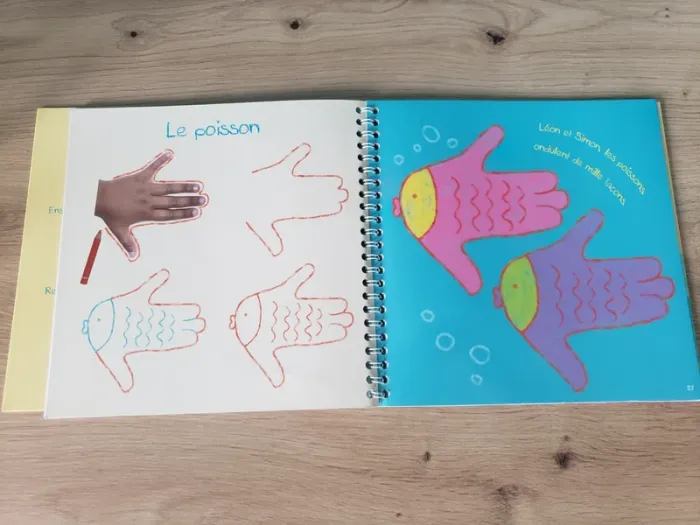 Le poisson
Léon et Simon les poissons
ondulent de mille façons
Ens
Re